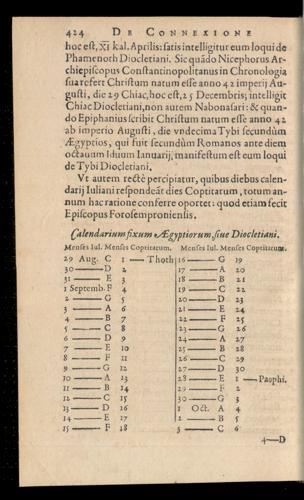 424 DE CONNEXIONE
hoc est, XI kal. Aprilis: satis intelligitur eum loqui de
Phamenoth Diocletiani. Sic quãdo Nicephorus Ar-
chiepiscopus Constantinopolitanus in Chronologia
sua refert Christum natum esse anno 42 imperij Au-
gusti, die 29 Chiac, hoc est, 25 Decembris; intelligit
Chiac Diocletiani, non autem Nabonasari: & quan-
do Epiphanius scribit Christum natum esse anno 42
ab imperio Augusti, die vndecima Tybi secundùm
Ægyptios, qui fuit secundùm Romanos ante diem
octauum Iduum Ianuarij, manifestum est eum loqui
de Tybi Diocletiani.
Vt autem rectè percipiatur, quibus diebus calen-
darij Iuliani respondeãt dies Coptitarum, totum an-
num hac ratione conferre oportet: quod etiam fecit
Episcopus Forosemproniensis.
Calendarium fixum Ægyptiorum, siue Diocletiani.
Menses Iul. Menses Coptitarum. Menses Iul. Menses Coptitarum.
29 Aug. C 1 — Thoth 16 — G 19
30 — D 2 17 — A 20
31 — E 3 18 — B 21
1 Septemb. F 4 19 — C 22
2 — G 5 20 — D 23
3 — A 6 21 — E 24
4 — B 7 22 — F 25
5 — C 8 23 — G 26
6 — D 9 24 — A 27
7 — E 10 25 — B 28
8 — F 11 26 — C 29
9 — G 12 27 — D 30
10 — A 13 28 — E 1 — Paophi.
11 — B 14 29 — F 2
12 — C 15 30 — G 3
13 — D 16 1 Oct. A 4
14 — E 17 2 — B 5
15 — F 18 3 — C 6
4 — D